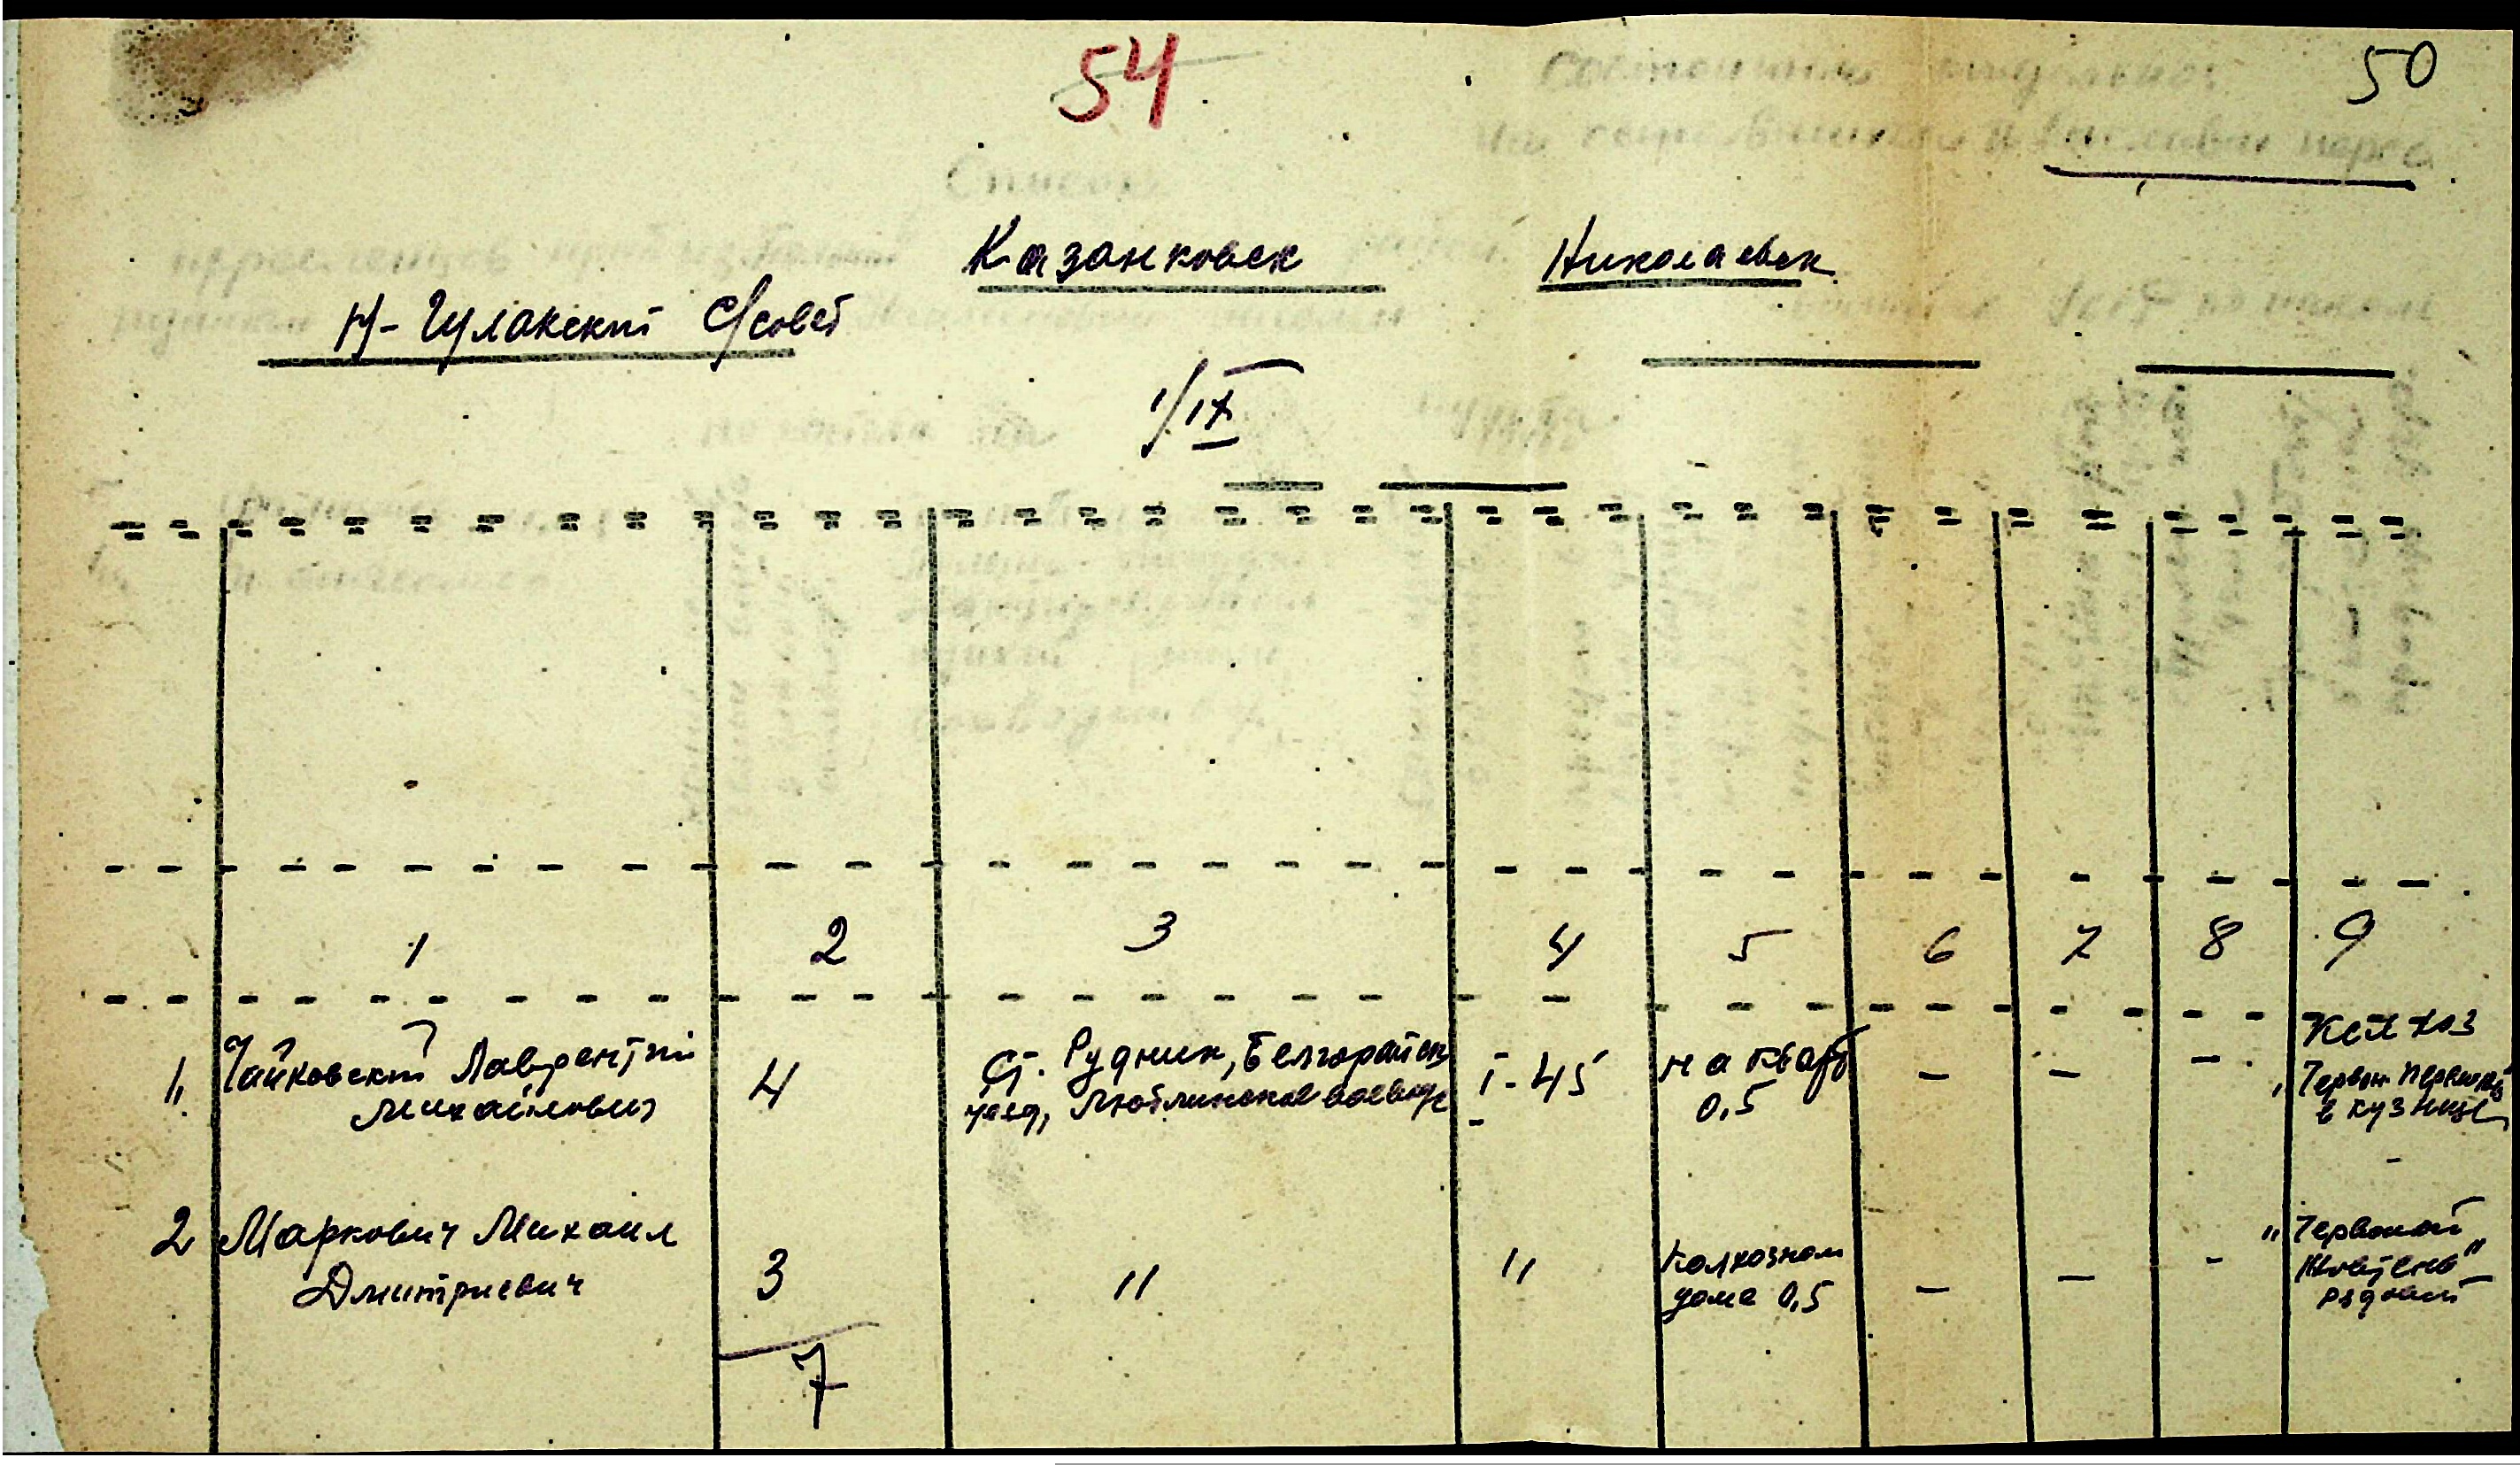 54
50
Казанковск Николаевск
Н-Гулакский С/совет
1/IX
1 2 3 4 5 6 7 8 9
1, Чайковский Лаврентий 4 Ст. Рудник, Белгорайск I-45 на кварт — — — Колхоз
Михайлович уезд, Люблинское воеводс 0,5 „Червон
в кузнице
2 Маркович Михаил 3 " " Колхозном — — - „Червоный
Дмитриевич доме 0,5 Жовтень"
рядовой
7